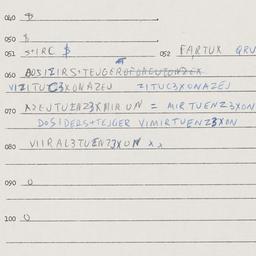 040 $
050 $
051 S+IRC $ 052 FARTUX QRU
060 BOSIZIRS+TEJGER
VIZITUC3XONAZEJ ZITUC3XONAZEJ
070 AZEJTUENZ3XMIRUN = MIRTUENZ3XON
DOSIDERS+TEJGER VIMIRTUENZ3XON
080 VIIRAL3TUENZ3XON X X
090 0
100 0